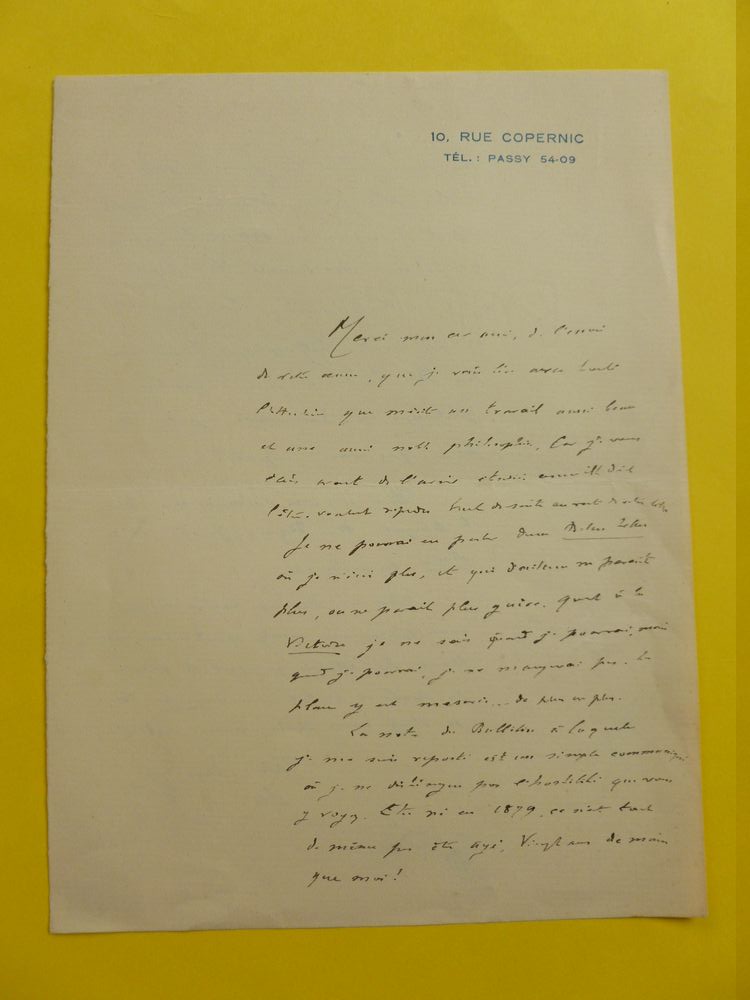 10, RUE COPERNIC
TÉL. : PASSY 54-09
Merci mon cher ami, de l'envoi
de votre œuvre, que je vais lire avec toute
l'attention que mérite un travail aussi beau
et une aussi noble philosophie. Car je vous
de l'avoir
répondre tout de suite au
Je ne pourrai en parler dans
où je n'écris plus, et qui d'ailleurs ne paraît
plus, ou ne paraît plus guère. Quant à la
Victoire je ne sais quand je pourrai, mais
quand je pourrai, je ne manquerai pas. La
place y est mesurée... de plus en plus.
La note du Bulletin à laquelle
je me suis reporté est un simple communiqué
où je ne distingue pas l'hostilité que vous
y voyez. Être né en 1879, ce n'est tout
de même pas être âgé. Vingt ans de moins
que moi !